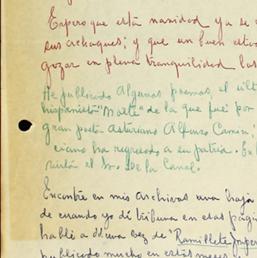 Espero que esta navidad ya se
sus achaques; y que un buen
gozar en plena tranquilidad las
He publicado algunos poemas, el últ
hispanista "Malte" de la que fué por
gran poeta asturiano Alfonso Camin,
ciano ha regresado a su patria. En
el Sr. De la Canal.
Encontré en mis archivos una hoja
de cuando yo di tribuna en estas pági
hablé a de "Ramillete Impe
publicado mucho en estos meses